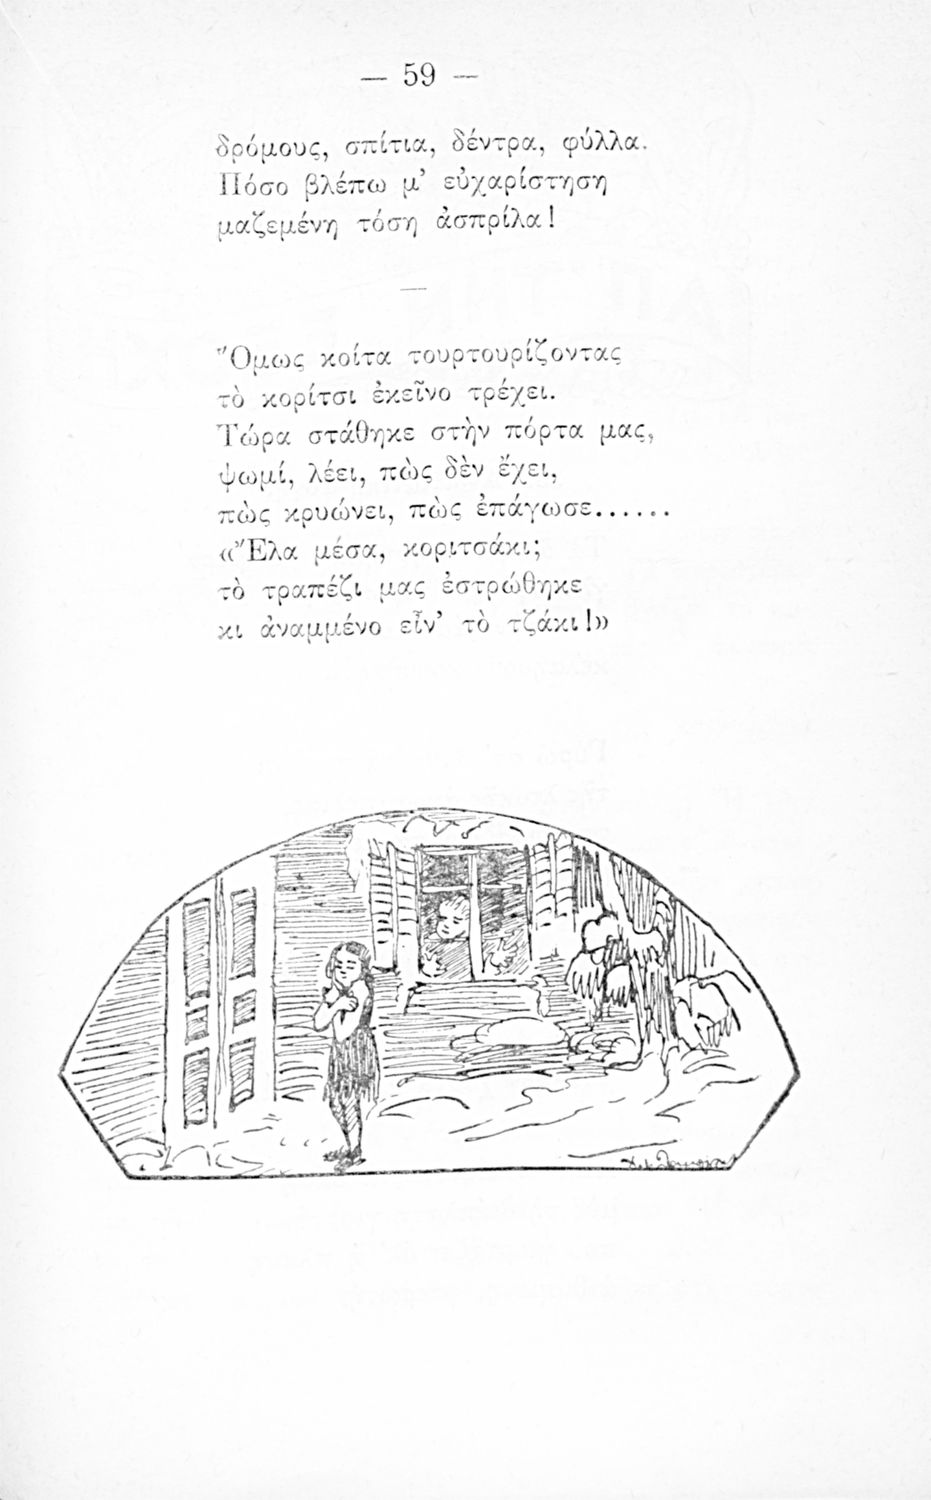 — 59 —
δρόμους, σπίτια, δέντρα, φύλλα.
Πόσο βλέπω μ’ εὐχαρίστηση
μαζεμένη τόση ἀσπρίλα!
—
Ὅμως κοίτα τουρτουρίζοντας
τὸ κορίτσι ἐκεῖνο τρέχει.
Τώρα στάθηκε στὴν πόρτα μας,
ψωμί, λέει, πὼς δὲν ἔχει,
πὼς κρυώνει, πὼς ἐπάγωσε......
«Ἔλα μέσα, κοριτσάκι;
τὸ τραπέζι μας ἐστρώθηκε
κι ἀναμμένο εἶν’ τὸ τζάκι!»